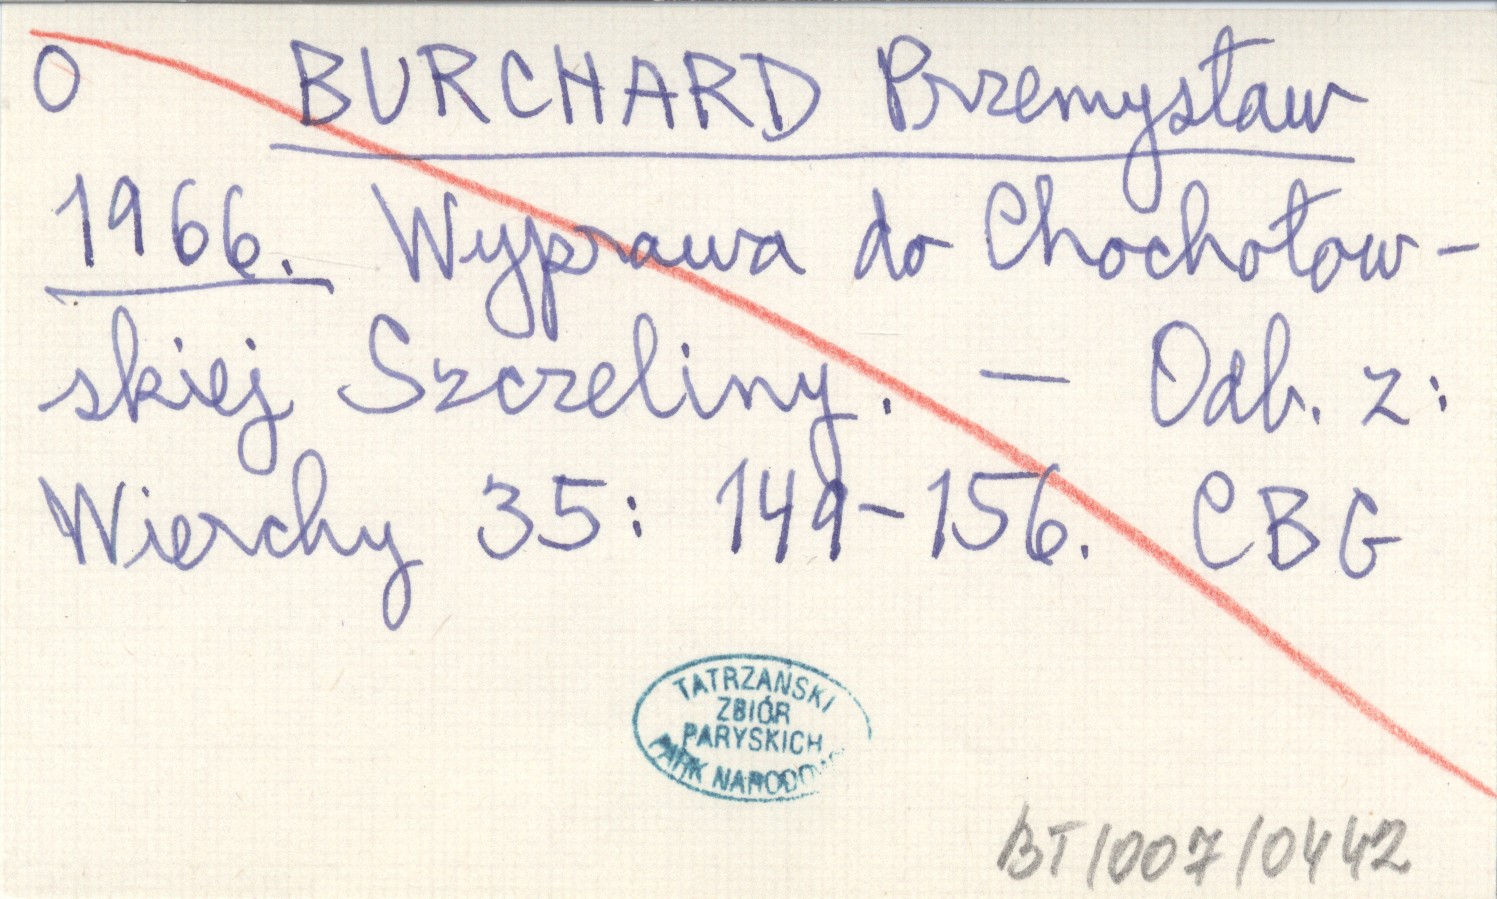 O BURCHARD Przemysław
1966. Wyprawa do Chochołow-
skiej Szczeliny. — Odb. z:
Wierchy 35: 149-156. CBG
TATRZAŃSKI
ZBIÓR
PARYSKICH
PARK NARODO
BT/007/0442